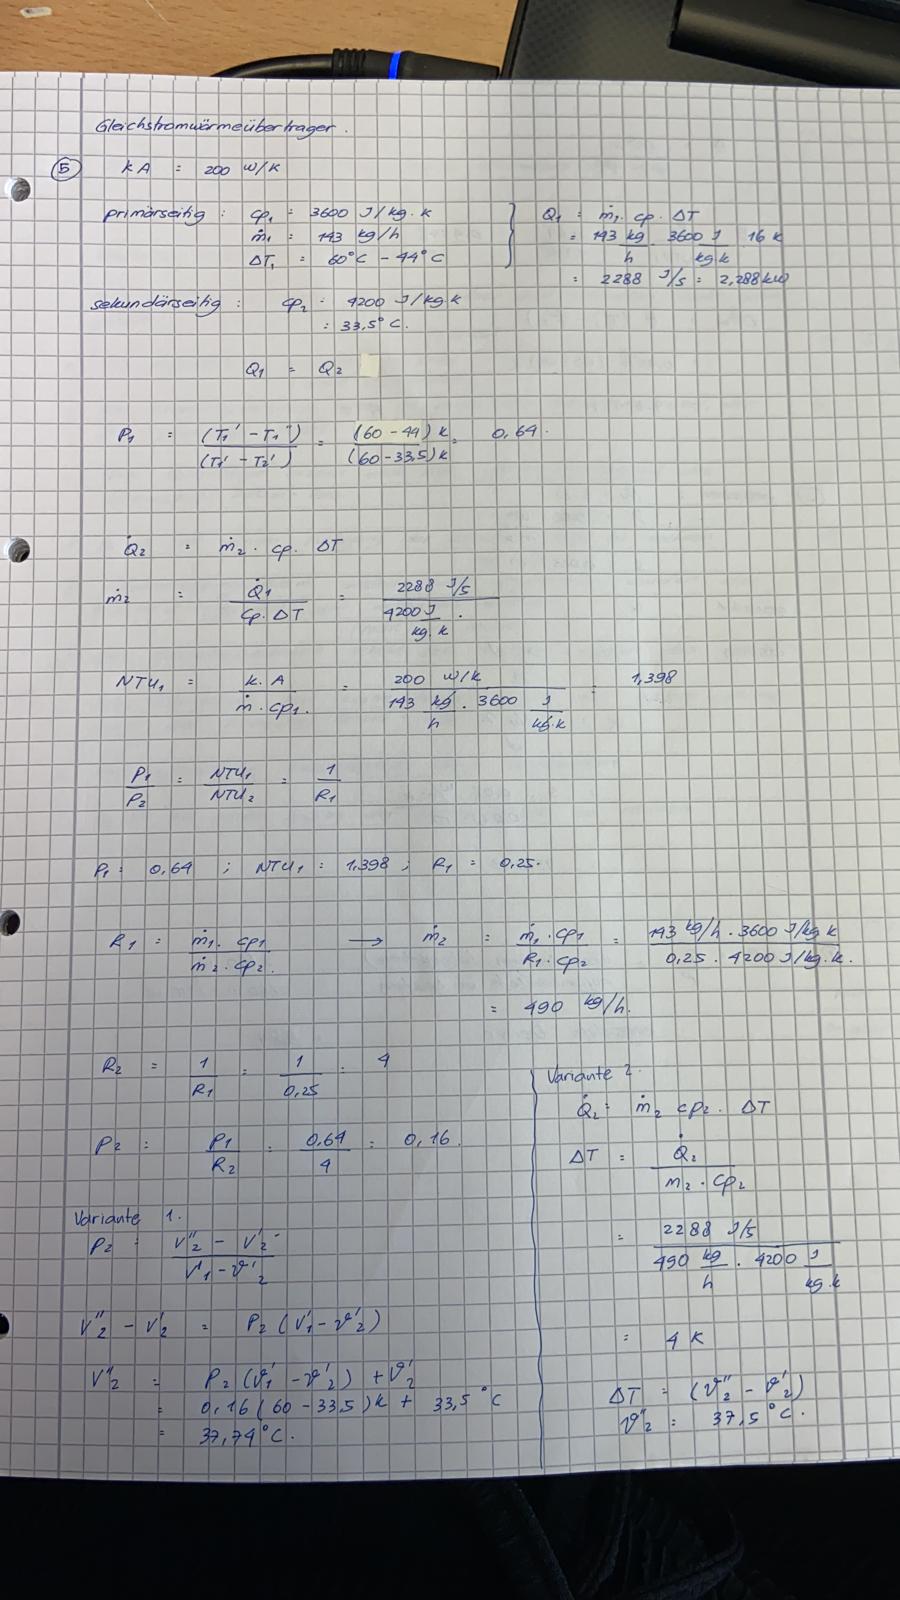 Gleichstromwärmeübertrager.
⑤ kA = 200 W/K
primärseitig : cp₁ = 3600 J/kg.K
ṁ₁ = 143 kg/h
ΔT₁ = 60°C - 44°C
Q₁ = ṁ₁ . cp . ΔT
= 143 kg/h . 3600 J/kg.K 16 K
= 2288 J/s = 2,288 kW
sekundärseitig : cp₂ = 4200 J/kg.K
: 33,5°C.
Q₁ = Q₂
P₁ = (T₁' - T₁'') / (T₁' - T₂') = (60-44) K / (60-33,5) K = 0,64.
Q̇₂ = ṁ₂ . cp . ΔT
ṁ₂ = Q̇₁ / cp . ΔT = 2288 J/s / 4200 J/kg.K .
NTU₁ = k.A / ṁ . cp₁. = 200 W/K / 143 kg/h . 3600 J/kg.K = 1,398
P₁/P₂ = NTU₁/NTU₂ = 1/R₁
P₁ = 0,64 ; NTU₁ = 1,398 ; R₁ = 0,25.
R₁ = ṁ₁ . cp₁ / ṁ₂ . cp₂. → ṁ₂ = ṁ₁ . cp₁ / R₁ . cp₂ = 143 kg/h . 3600 J/kg K / 0,25 . 4200 J/kg.K.
= 490 kg/h.
R₂ = 1/R₁ = 1/0,25 = 4
P₂ = P₁/R₂ = 0,64/4 = 0,16.
Variante 1.
P₂ = V₂'' - V₂' / V₁' - ϑ₂'
V₂'' - V₂' = P₂ (V₁' - ϑ₂')
V₂'' = P₂ (ϑ₁' - ϑ₂') + V₂'
= 0,16 (60 - 33,5) K + 33,5 °C
= 37,74°C.
Variante 2.
Q̇₂ = ṁ₂ cp₂ . ΔT
ΔT = Q̇₂ / m₂ . cp₂
= 2288 J/s / 490 kg/h . 4200 J/kg.K
= 4 K
ΔT = (ϑ₂'' - ϑ₂')
ϑ₂'' = 37,5°C.